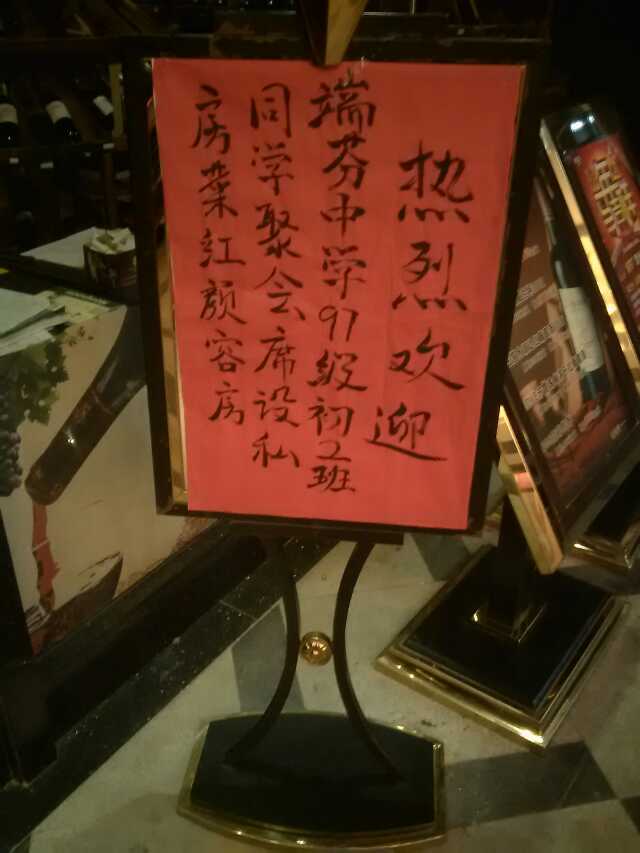 热烈欢迎
端芬中学97级初2班
同学聚会席设私
房菜红颜容房